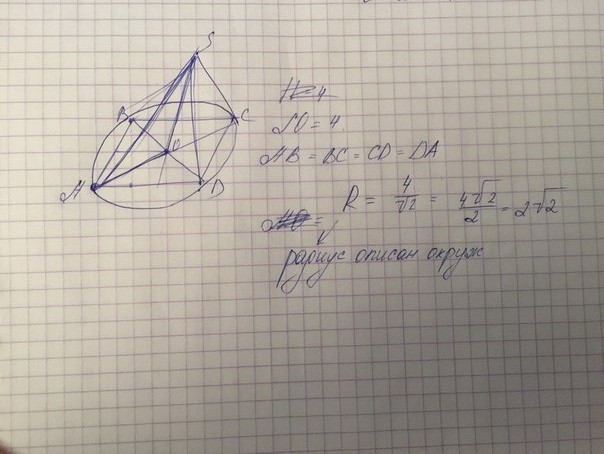 S
B
C
O
A
D
H=4
SO = 4
AB = BC = CD = DA
R = 4/√2 = 4√2/2 = 2√2
радиус описан окруж